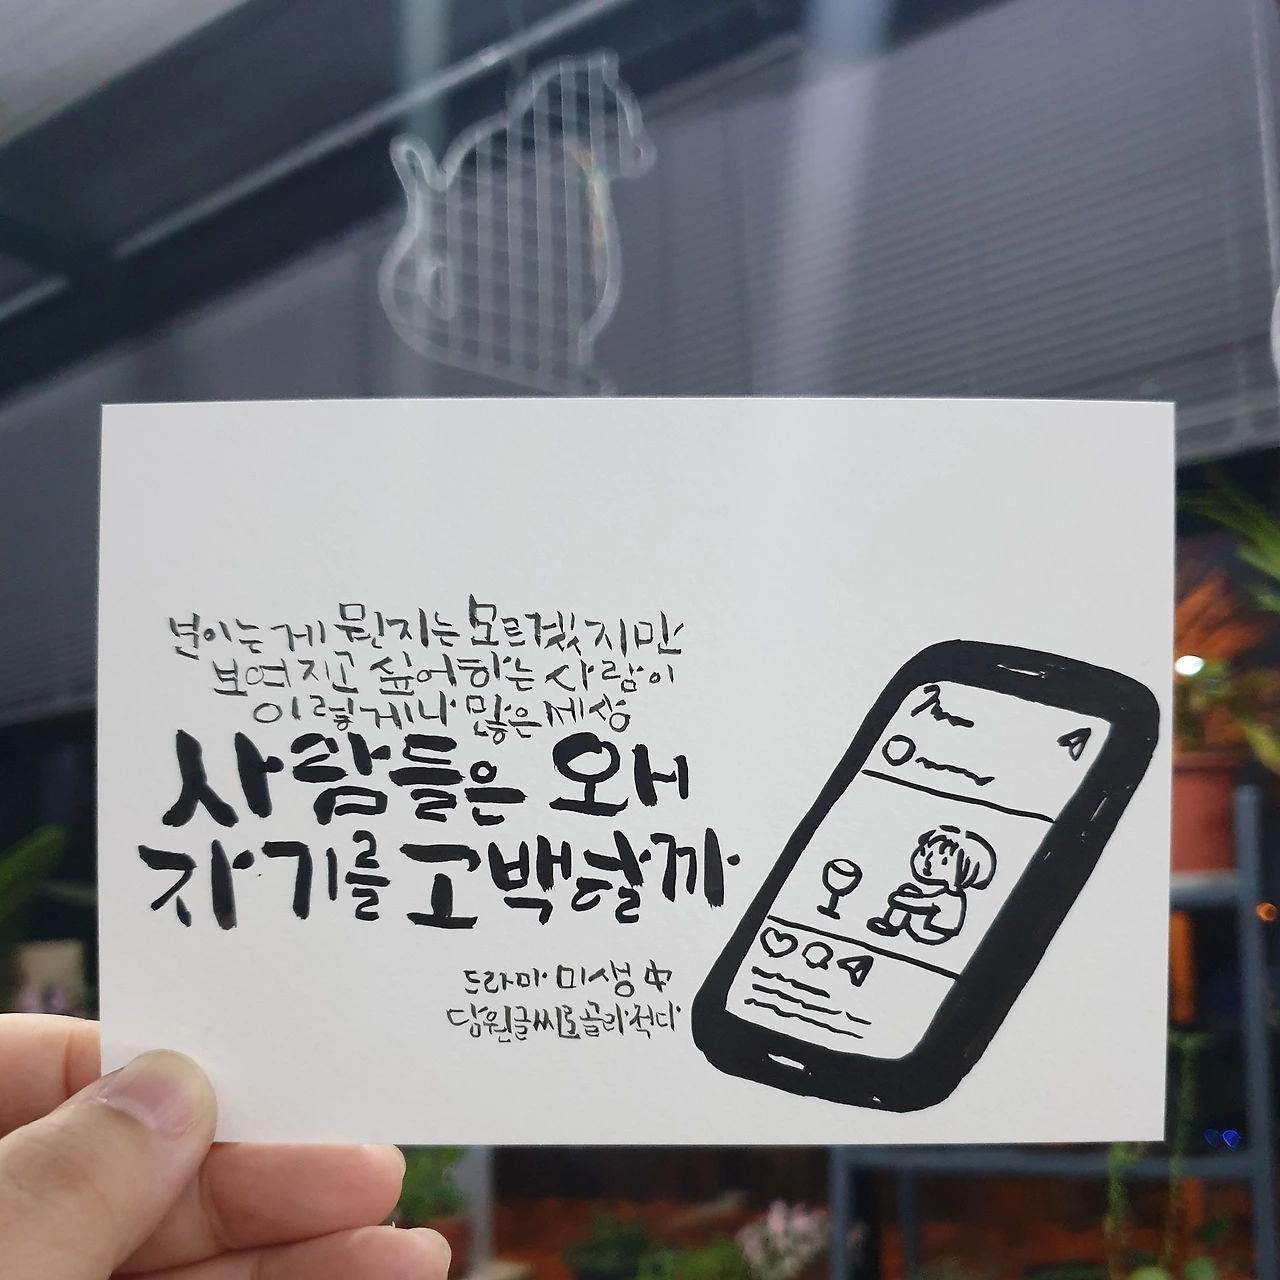 보이는 게 뭔지는 모르겠지만
보여지고 싶어하는 사람이
이렇게나 많은 세상
사람들은 왜
자기를 고백할까
드라마 미생 中
담원글씨로 골라 적다